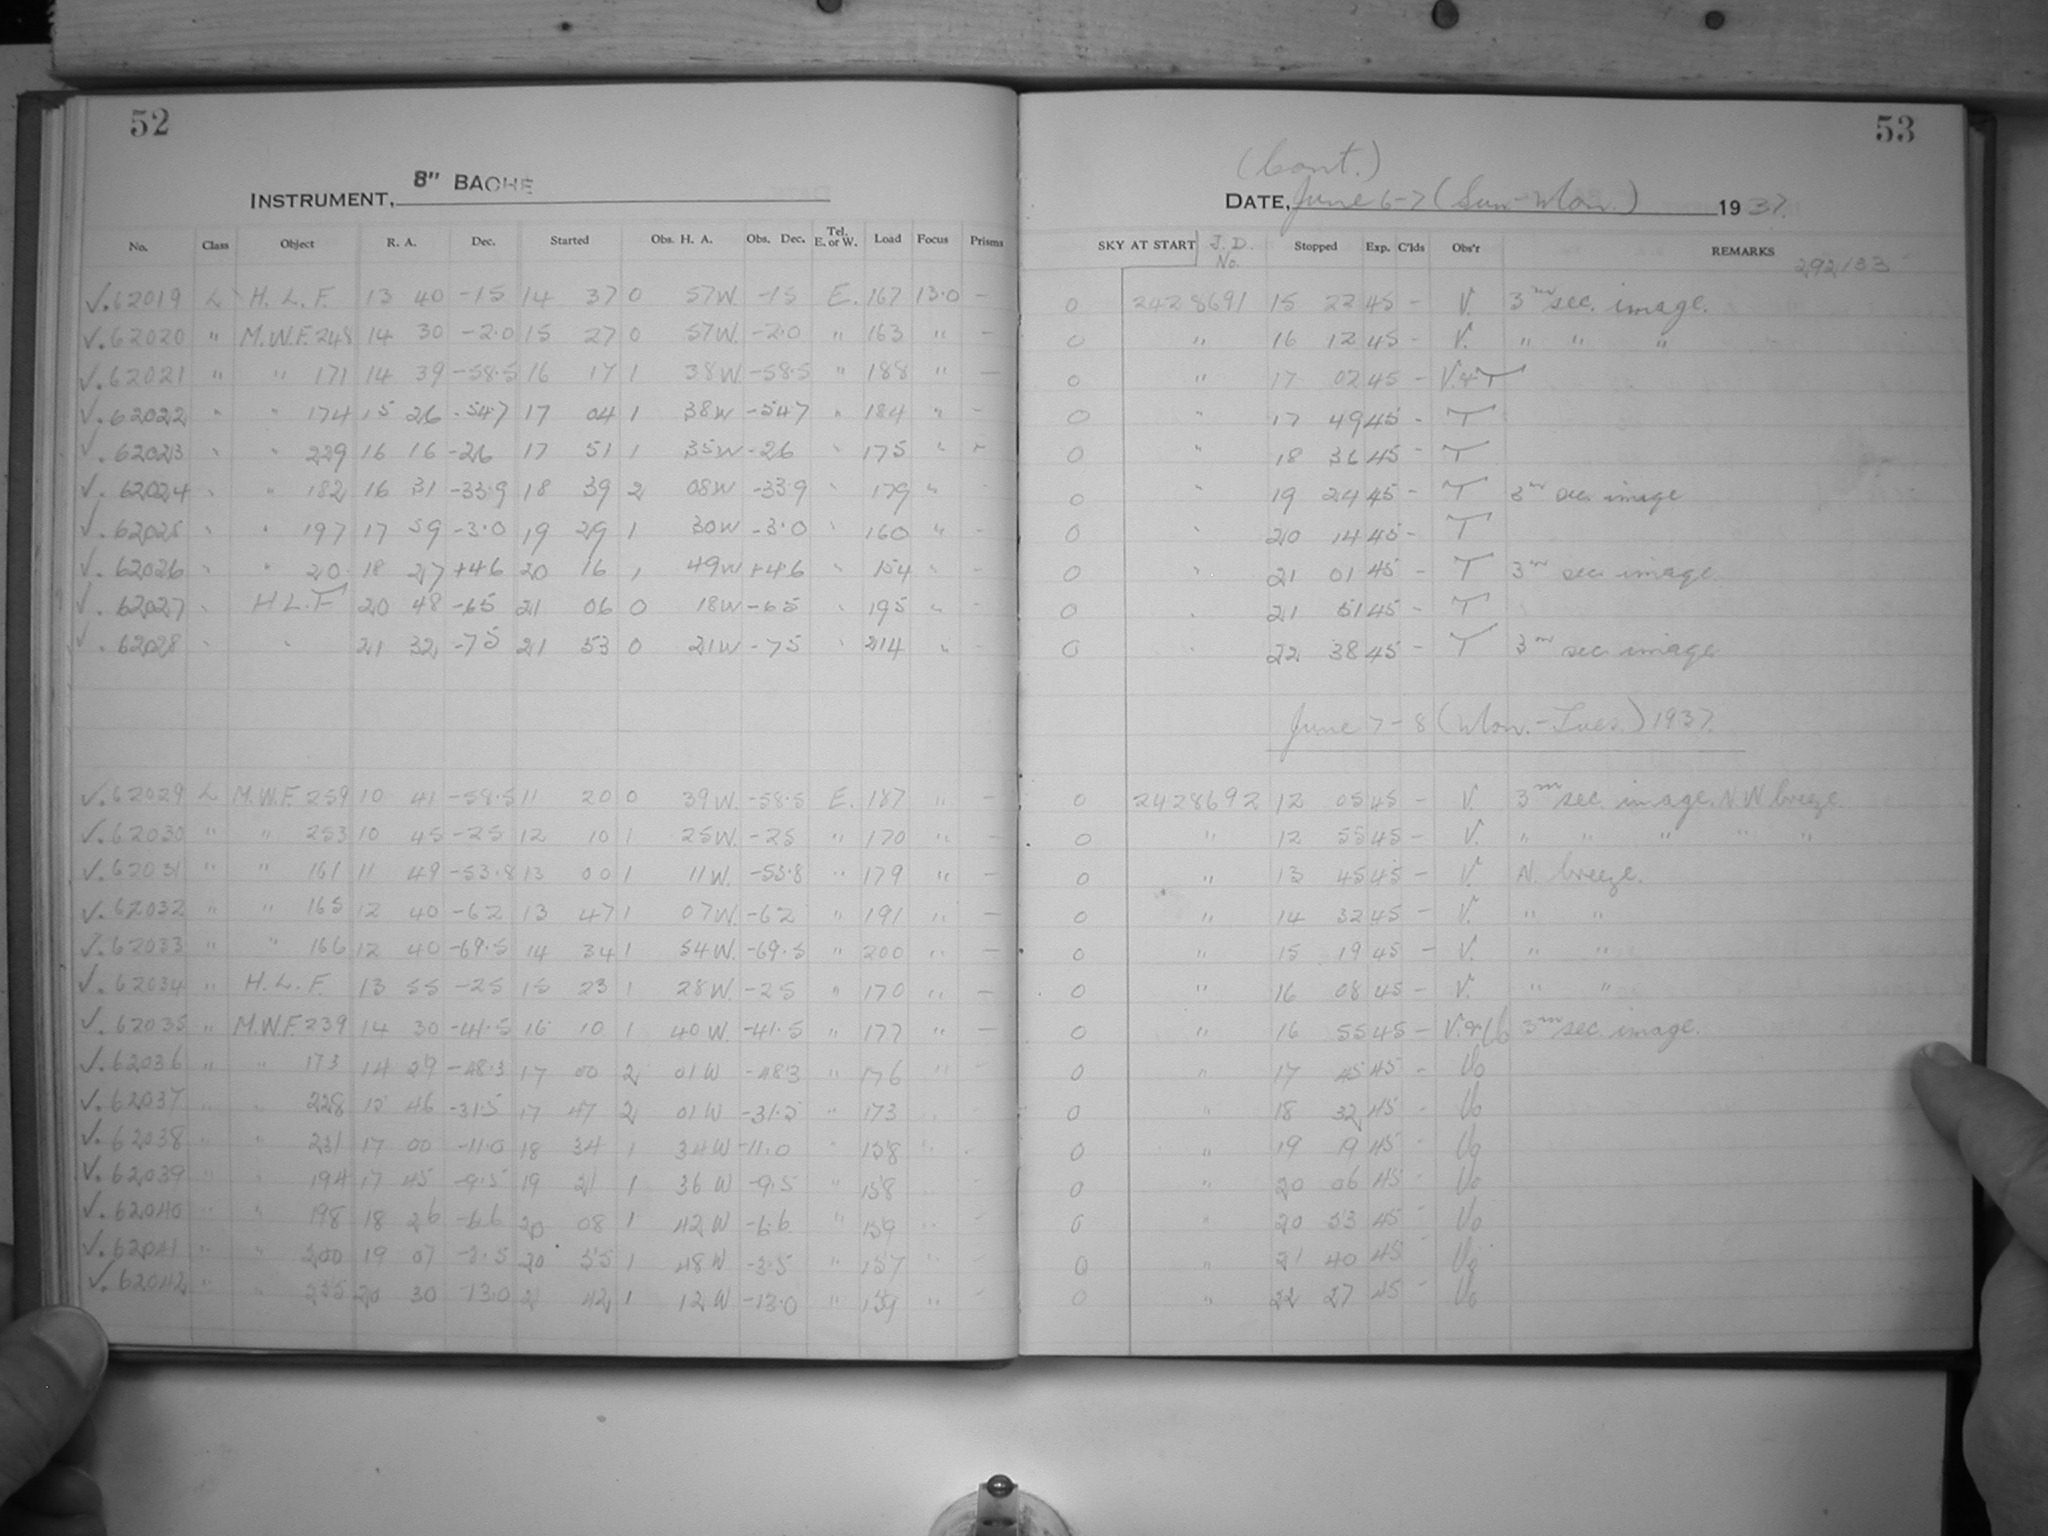 52
INSTRUMENT, 8" BACHE
No. Class Object R. A. Dec. Started Obs. H. A. Obs. Dec. Tel. E. or W. Load Focus Prisms
√.62019 L H. L. F. 13 40 -15 14 37 0 57W -15 E. 167 13.0 -
√.62020 " M.W.F. 248 14 30 -2.0 15 27 0 57W. -2.0 " 163 " -
√.62021 " " 171 14 39 -58.5 16 17 1 38W -58.5 " 188 " -
√.62022 " " 174 15 26 -54.7 17 04 1 38W -54.7 " 184 " -
√.62023 " " 229 16 16 -26 17 51 1 35W -26 " 175 " -
√.62024 " " 182 16 31 -33.9 18 39 2 08W -33.9 " 179 " -
√.62025 " " 197 17 59 -3.0 19 29 1 30W -3.0 " 160 " -
√.62026 " " 20 18 27 +46 20 16 1 49W +46 " 154 " -
√.62027 " H.L.F 20 48 -65 21 06 0 18W -65 " 195 " -
√.62028 " " 21 32 -75 21 53 0 21W -75 " 214 " -
√.62029 L M.W.F. 259 10 41 -58.5 11 20 0 39W. -58.5 E. 187 " -
√.62030 " " 253 10 45 -25 12 10 1 25W. -25 " 170 " -
√.62031 " " 161 11 49 -53.8 13 00 1 11W. -53.8 " 179 " -
√.62032 " " 165 12 40 -62 13 47 1 07W. -62 " 191 " -
√.62033 " " 166 12 40 -69.5 14 34 1 54W. -69.5 " 200 " -
√.62034 " H. L. F. 13 55 -25 15 23 1 28W. -25 " 170 " -
√.62035 " M.W.F. 239 14 30 -41.5 16 10 1 40W. -41.5 " 177 " -
√.62036 " " 173 14 29 -48.3 17 00 2 01W -48.3 " 176 " -
√.62037 " " 228 15 46 -31.5 17 47 2 01W -31.5 " 173 " -
√.62038 " " 231 17 00 -11.0 18 34 1 34W -11.0 " 158 " -
√.62039 " " 194 17 45 -9.5 19 21 1 36W -9.5 " 158 " -
√.62040 " " 198 18 26 -6.6 20 08 1 42W -6.6 " 159 " -
√.62041 " " 200 19 07 -3.5 20 55 1 48W -3.5 " 157 " -
√.62042 " " 235 20 30 -13.0 21 42 1 12W -13.0 " 159 " -
53
(Cont.)
DATE, June 6-7 (Sun-Mon.) 1937.
SKY AT START J. D. No. Stopped Exp. C'lds Obs'r REMARKS
292,133
0 2428691 15 22 45 - V. 3m sec. image.
0 " 16 12 45 - V. " " "
0 " 17 02 45 - V.&T
0 " 17 49 45 - T
0 " 18 36 45 - T
0 " 19 24 45 - T 3m sec. image
0 " 20 14 45 - T
0 " 21 01 45 - T 3m sec. image
0 " 21 51 45 - T
0 " 22 38 45 - T 3m sec. image
June 7-8 (Mon.-Tues.) 1937.
0 2428692 12 05 45 - V. 3m sec. image. N.W. breeze.
0 " 12 55 45 - V. " " " " "
0 " 13 45 45 - V. N. breeze.
0 " 14 32 45 - V. " "
0 " 15 19 45 - V. " "
0 " 16 08 45 - V. " "
0 " 16 55 45 - V.& 3m sec. image.
0 " 17 45 45 -
0 " 18 32 45 -
0 " 19 19 45 -
0 " 20 06 45 -
0 " 20 53 45 -
0 " 21 40 45 -
0 " 22 27 45 -